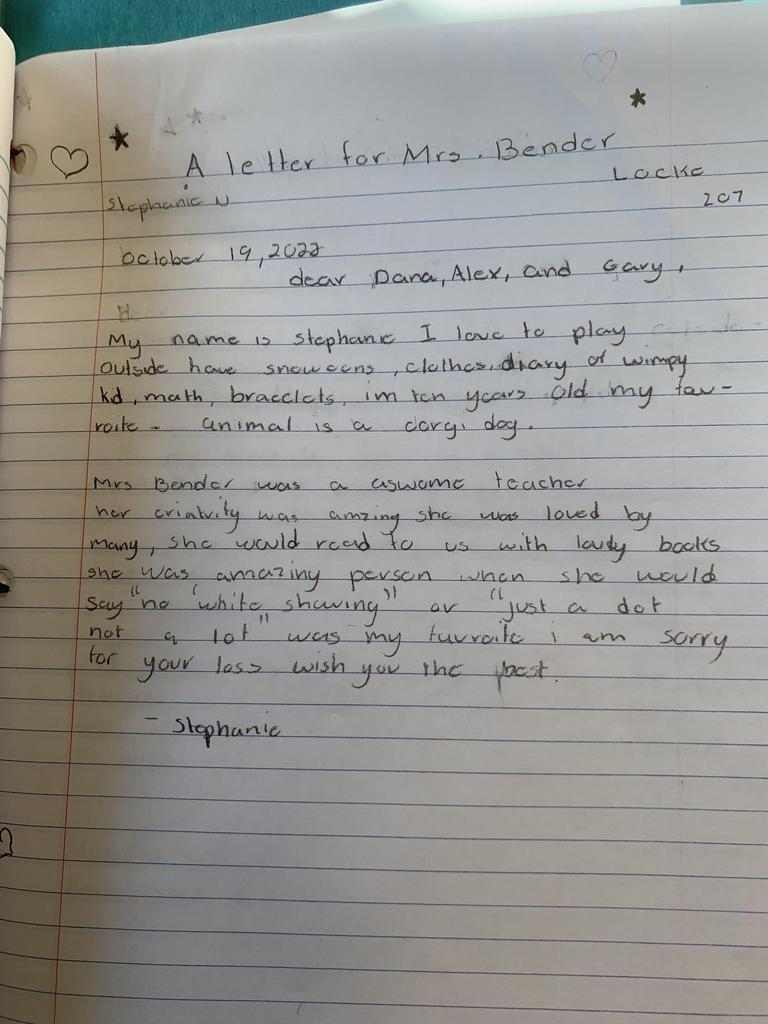 A letter for Mrs. Bender
Locke
Stephanie N
207
October 19, 2022
dear Dana, Alex, and Gary,
My name is stephanie I love to play
outside have snowcons, clothes, diary of wimpy
kd, math, bracelets, im ten years old my fav-
roite - animal is a corgi dog.
Mrs Bender was a aswome teacher
her criativity was amzing she was loved by
many, she would read to us with lovely books
she was amazing person when she would
say "no "white showing" or "just a dot
not a lot" was my favroite i am sorry
for your loss wish you the best.
- Stephanie